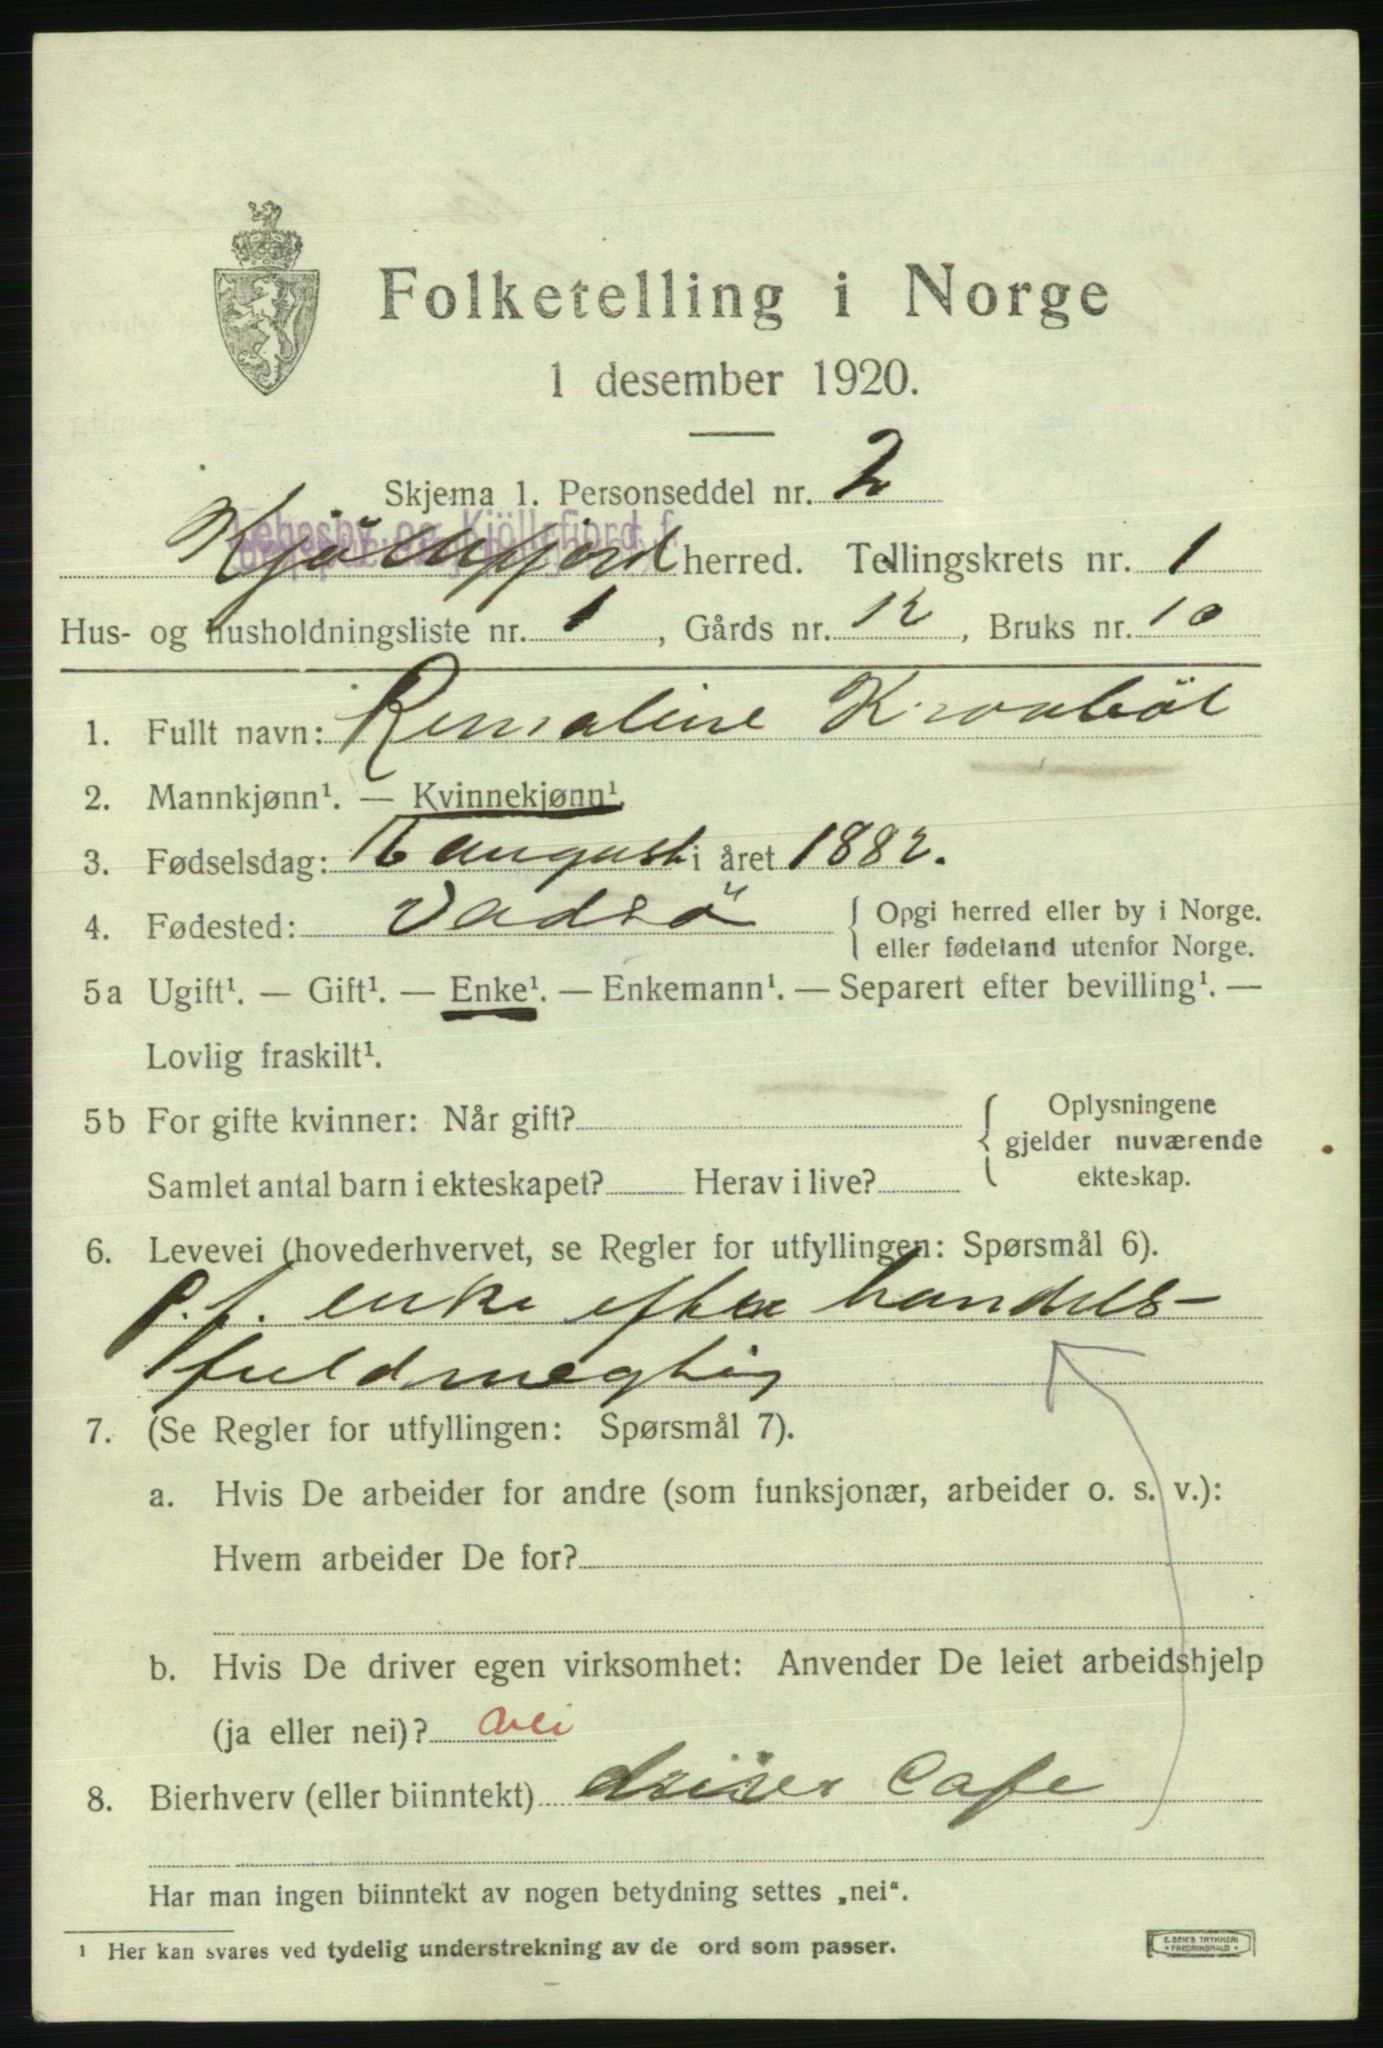 Folketelling i Norge
1 desember 1920.
Skjema 1. Personseddel nr. 2
Kjöllefjord herred. Tellingskrets nr. 1
Hus- og husholdningsliste nr. 1, Gårds nr. 12, Bruks nr. 10
1. Fullt navn: Kronböl
2. Mannkjønn¹. — Kvinnekjønn¹.
3. Fødselsdag: 16 august i året 1882.
4. Fødested: Vadsö { Opgi herred eller by i Norge.
eller fødeland utenfor Norge.
5a Ugift¹. — Gift¹. — Enke¹. — Enkemann¹. — Separert efter bevilling¹. —
Lovlig fraskilt¹.
5b For gifte kvinner: Når gift? { Oplysningene
gjelder nuværende
Samlet antal barn i ekteskapet? Herav i live? ekteskap.
6. Levevei (hovederhvervet, se Regler for utfyllingen: Spørsmål 6).
p. f. enke efter handels-
fuldmegtig
7. (Se Regler for utfyllingen: Spørsmål 7).
a. Hvis De arbeider for andre (som funksjonær, arbeider o. s. v.):
Hvem arbeider De for?
b. Hvis De driver egen virksomhet: Anvender De leiet arbeidshjelp
(ja eller nei)? nei
8. Bierhverv (eller biinntekt) driver Cafe
Har man ingen biinntekt av nogen betydning settes „nei“.
¹ Her kan svares ved tydelig understrekning av de ord som passer.
E. SEM'S TRYKKERI
FREDRIKSHALD